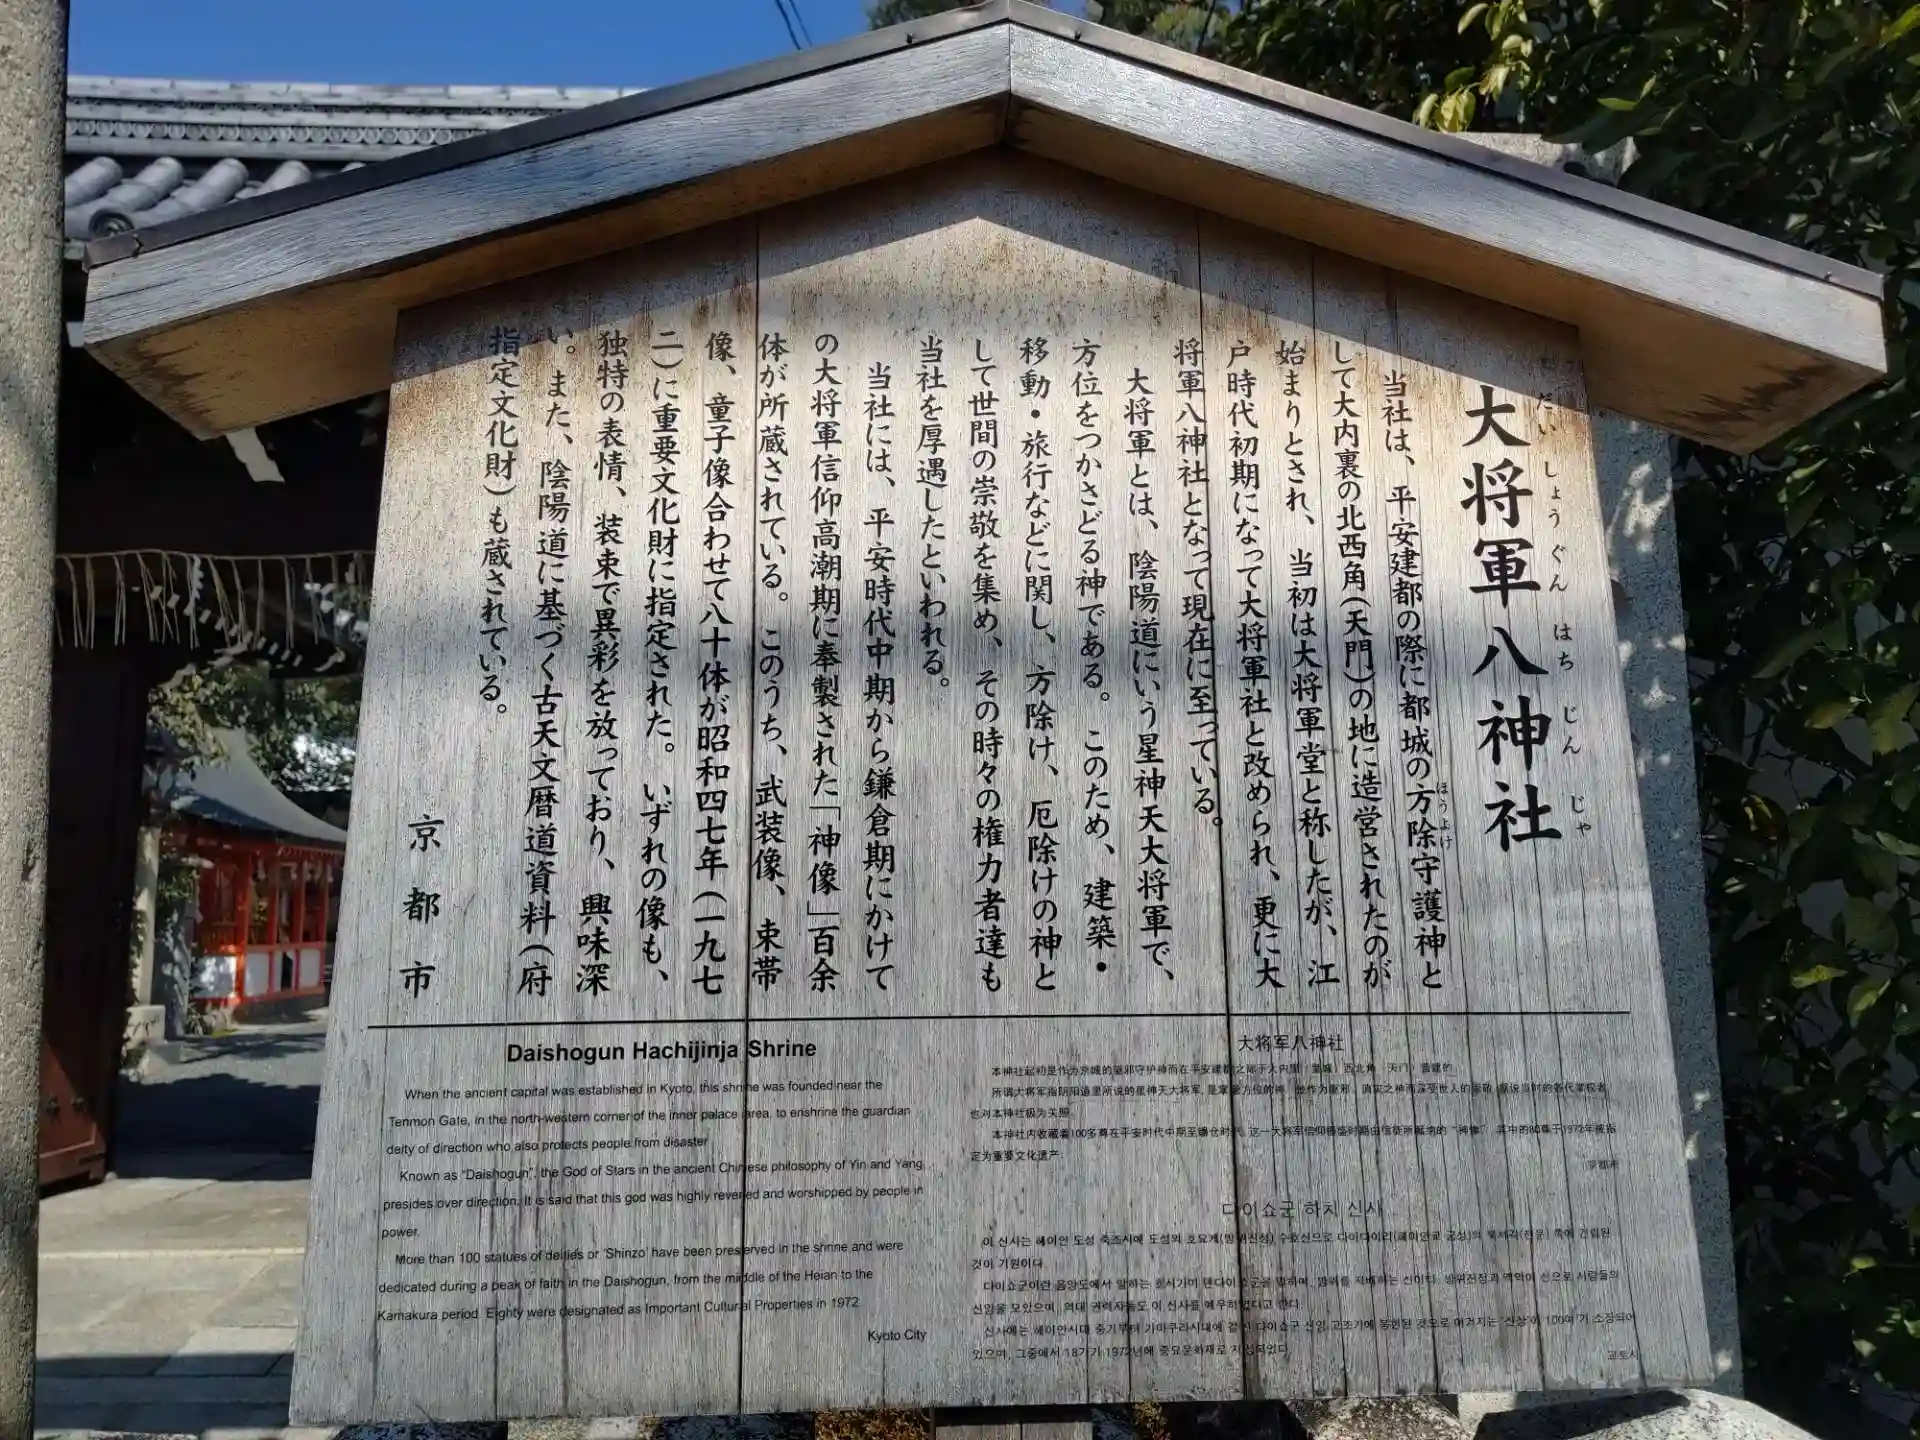 大将軍八神社
だい しょう ぐん はち じん じゃ
当社は、平安建都の際に都城の方除守護神と
ほうよけ
して大内裏の北西角(天門)の地に造営されたのが
始まりとされ、当初は大将軍堂と称したが、江
戸時代初期になって大将軍社と改められ、更に大
将軍八神社となって現在に至っている。
大将軍とは、陰陽道にいう星神天大将軍で、
方位をつかさどる神である。このため、建築・
移動・旅行などに関し、方除け、厄除けの神と
して世間の崇敬を集め、その時々の権力者達も
当社を厚遇したといわれる。
当社には、平安時代中期から鎌倉期にかけて
の大将軍信仰高潮期に奉製された「神像」百余
体が所蔵されている。このうち、武装像、束帯
像、童子像合わせて八十体が昭和四七年(一九七
二)に重要文化財に指定された。いずれの像も、
独特の表情、装束で異彩を放っており、興味深
い。また、陰陽道に基づく古天文暦道資料(府
指定文化財)も蔵されている。
京都市
Daishogun Hachijinja Shrine
When the ancient capital was established in Kyoto, this shrine was founded near the
Tenmon Gate, in the north-western corner of the inner palace area, to enshrine the guardian
deity of direction who also protects people from disaster
Known as "Daishogun", the God of Stars in the ancient Chinese philosophy of Yin and Yang,
presides over direction. It is said that this god was highly revered and worshipped by people in
power.
More than 100 statues of deities or 'Shinzo' have been preserved in the shrine and were
dedicated during a peak of faith in the Daishogun, from the middle of the Heian to the
Kamakura period. Eighty were designated as Important Cultural Properties in 1972
Kyoto City
大将军八神社
本神社起初是作为京城的驱邪守护神而在平安建都之际于大内里 西北角(天门)营建的
所谓大将军指阴阳道里所说的星神天大将军,是掌管方位的神
也对本神社极为关照
本神社内收藏着100多尊在平安时代中期至镰仓时代,这一大将军信仰 "神像",其中的80尊于1972年被指
定为重要文化遗产.
京都市
다이쇼군 하치 신사
이 신사는 헤이안 도성 축조시에 도성의 호요케(방위신성) 수호신으로
것이 기원이다.
다이쇼군이란 음양도에서 말하는
신앙을 모았으며, 역대 권력자들도 이 신사를 예우하였다고 한다.
신사에는 헤이안시대 중기부터 가마쿠라시대에 걸친 다이쇼군 신앙 고조기에 봉헌된 것으로 여겨지는 '신상'이 100여기 소장되어
있으며, 그중에서 1972년에 중요문화재로 지정되었다.
교토시